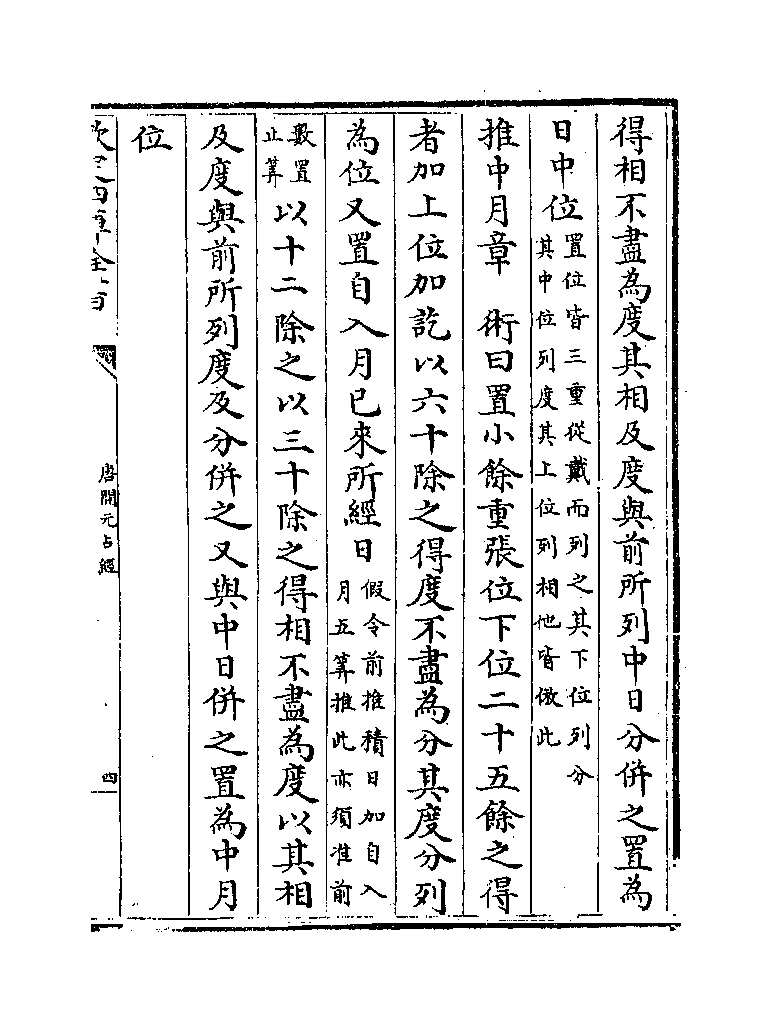 得相不盡為度其相及度與前所列中日分併之置為
日中位置位皆三重從戴而列之其下位列分其中位列度其上位列相他皆倣此
推中月章　術曰置小餘重張位下位二十五餘之得
者加上位加訖以六十除之得度不盡為分其度分列
為位又置自入月已來所經日假令前推積日加自入月五筭推此亦須准前
數置止筭以十二除之以三十除之得相不盡為度以其相
及度與前所列度及分併之又與中日併之置為中月
位
欽定四庫全書
唐開元占經
四